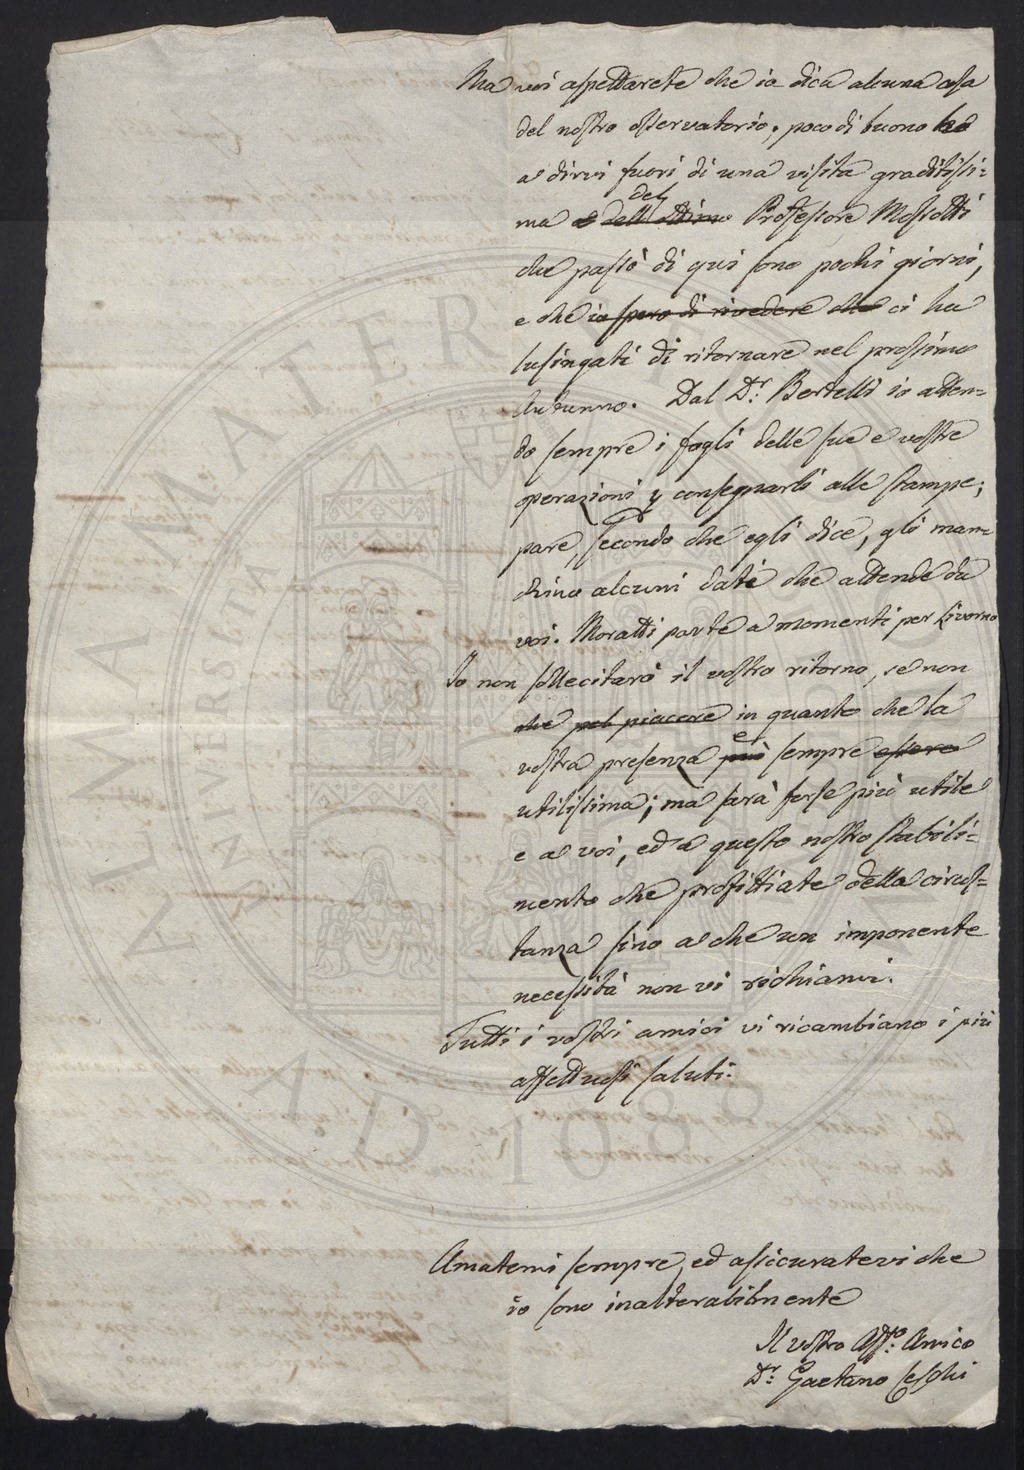 Ma voi aspettarete che io dica alcuna cosa
del nostro osservatorio; poco di buono ho
a dirvi fuori di una visita graditissi=
ma e dell'ottimo del Professore Mossotti
che passò di qui sono pochi giorni,
e che io spero di rivedere che ci ha
lusingati di ritornare nel prossimo
Autunno. Dal Dr: Bertelli io atten=
do sempre i fogli delle sue e vostre
operazioni p consegnarli alle stampe;
pare, secondo che egli dice, gli man=
chino alcuni dati che attende da
voi. Moratti parte a momenti per Livorno
Io non sollecitarò il vostro ritorno, se non
che pel piacere in quanto che la
vostra presenza può è sempre essere
utilissima; ma sarà forse più utile
e a voi, ed a questo nostro stabili=
mento che profittiate della circos=
tanza sino a che un imponente
necessità non vi richiami.
Tutti i vostri amici vi ricambiano i più
affettuosi saluti.
Amatemi sempre, ed assicuratevi che
io sono inalterabilmente
Il vostro Affmo: Amico
Dr: Gaetano Ceschi
ALMA MATER STUDIORUM
UNIVERSITA DI BOLOGNA
A.D. 1088